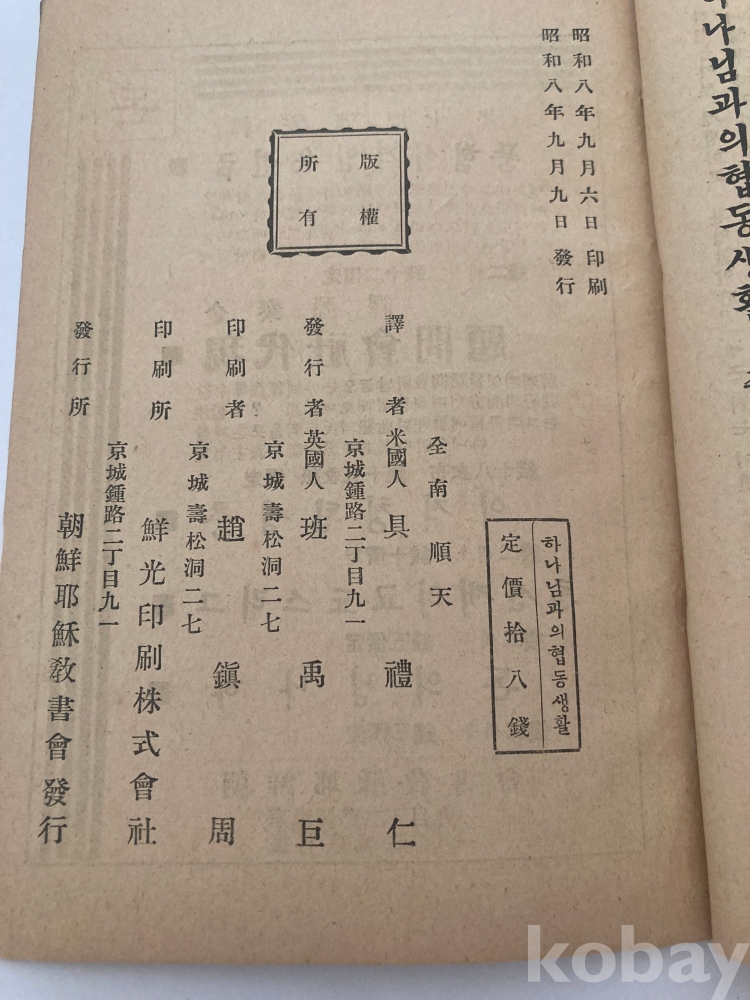 하나님과의협동생활
昭和八年九月六日 印刷
昭和八年九月九日 發行
版權
所有
하나님과의협동생활
定價拾八錢
全南順天
譯者 米國人 具禮仁
京城鍾路二丁目九一
發行者 英國人 班禹巨
京城壽松洞二七
印刷者 趙鎭周
京城壽松洞二七
印刷所 鮮光印刷株式會社
京城鍾路二丁目九一
發行所 朝鮮耶穌敎書會 發行
kobay